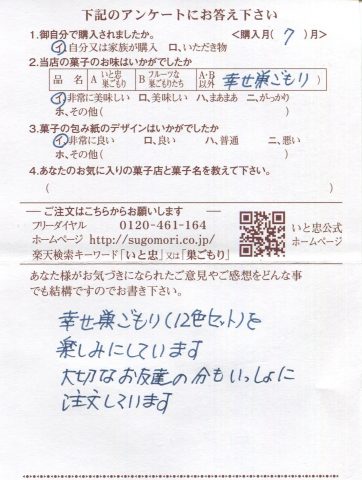 下記のアンケートにお答え下さい
1.御自分で購入されましたか。 <購入月( 7 )月>
イ、自分又は家族が購入 ロ、いただき物
2.当店の菓子のお味はいかがでしたか
品 名 A いと忠巣ごもり B フルーツな巣ごもりたち A・B以外 幸せ巣ごもり
イ、非常に美味しい ロ、美味しい ハ、まあまあ ニ、がっかり
ホ、その他( )
3.菓子の包み紙のデザインはいかがでしたか
イ、非常に良い ロ、良い ハ、普通 ニ、悪い
ホ、その他( )
4.あなたのお気に入りの菓子店と菓子名を教えて下さい。
( )
ご注文はこちらからお願いします
フリーダイヤル 0120-461-164
ホームページ http://sugomori.co.jp/
楽天検索キーワード「いと忠」又は「巣ごもり」
いと忠公式
ホームページ
あなた様がお気づきになられたご意見やご感想をどんな事
でも結構ですのでお書き下さい。
幸せ巣ごもり(12色セット)を
楽しみにしています
大切なお友達の分もいっしょに
注文しています